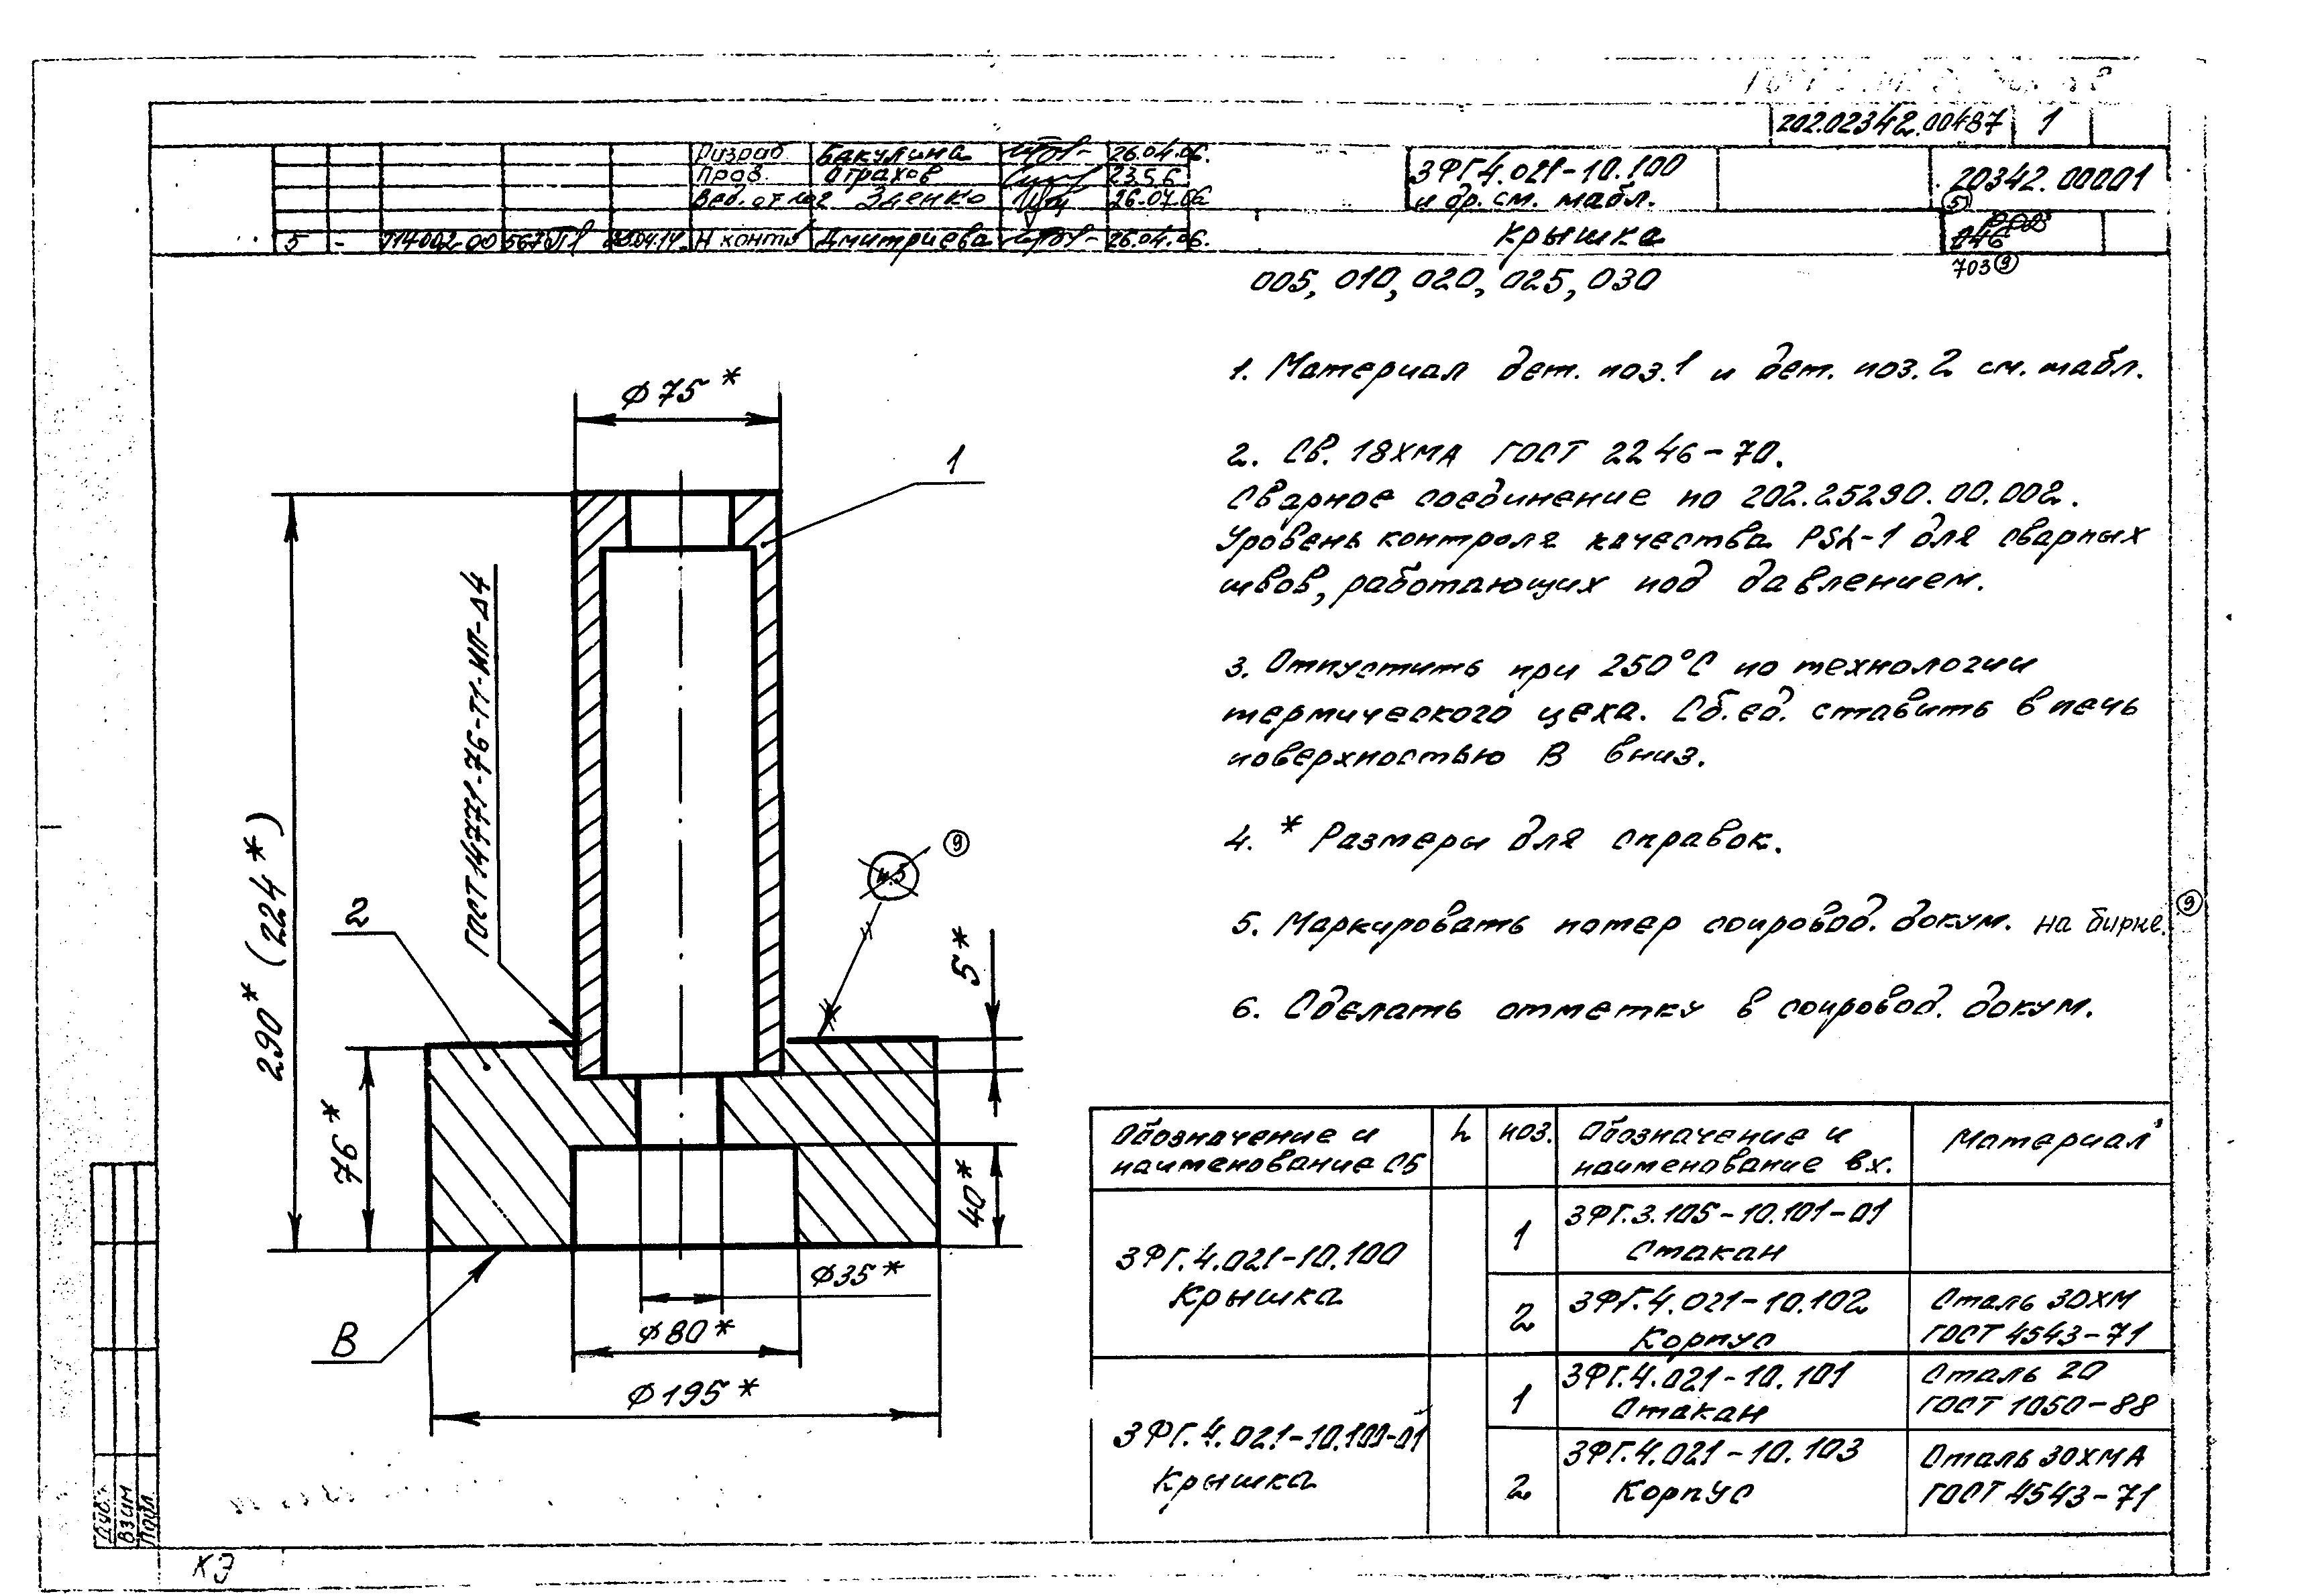 202.02342.00487 1
Разраб. Бакулина 26.04.06.
Пров. Страхов 23.5.6
Вед. от 102 Зденко 26.04.06
5 - 714002.00 567 Н контр Дмитриева 26.04.06.
ЗФГ4.021-10.100
и др. см. табл.
Крышка
20342.00001
5
246
703 9
005, 010, 020, 025, 030
1. Материал дет. поз.1 и дет. поз.2 см. табл.
2. Св. 18ХМА ГОСТ 2246-70.
Сварное соединение по 202.25290.00.002.
Уровень контроля качества PSL-1 для сварных
швов, работающих под давлением.
3. Отпустить при 250°С по технологии
термического цеха. Сб.ед. ставить в печь
поверхностью В вниз.
4. * Размеры для справок.
5. Маркировать номер сопровод. докум. на бирке. 9
6. Сделать отметку в сопровод. докум.
ф75*
1
ГОСТ 14771-76-Т1-ИП-Δ4
290* (224*)
2
9
5*
76*
40*
ф35*
В
ф80*
ф195*
Обозначение и наименование СБ
L
поз.
Обозначение и наименование вх.
Материал
ЗФГ.4.021-10.100
Крышка
1
ЗФГ.3.105-10.101-01
Стакан
2
ЗФГ.4.021-10.102
Корпус
Сталь 30ХМ
ГОСТ 4543-71
ЗФГ.4.021-10.100-01
Крышка
1
ЗФГ.4.021-10.101
Стакан
Сталь 20
ГОСТ 1050-88
2
ЗФГ.4.021-10.103
Корпус
Сталь 30ХМА
ГОСТ 4543-71
Дуб.
Взим
Подл
КЭ